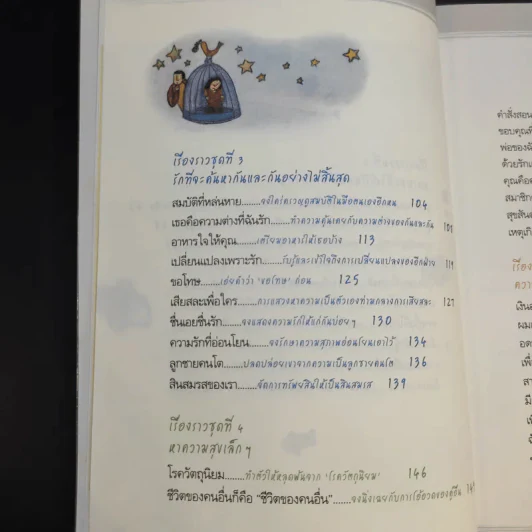 เรื่องราวชุดที่ 3
รักที่จะค้นหากันและกันอย่างไม่สิ้นสุด
สมบัติที่หล่นหาย.......จงใคร่ครวญดูสมบัติในมือตนเองอีกหน 104
เธอคือความต่างที่ฉันรัก.......ทำความคุ้นเคยกับความต่างของกันและกัน 108
อาหารใจให้คุณ.......เตรียมอาหารให้เธอบ้าง 113
เปลี่ยนแปลงเพราะรัก.......รับรู้และเข้าใจถึงการเปลี่ยนแปลงของอีกฝ่าย 119
ขอโทษ.......เอ่ยคำว่า 'ขอโทษ' ก่อน 125
เสียสละเพื่อใคร.......การแสวงหาความเป็นตัวเองท่ามกลางการเสียสละ 127
ชื่นเอยชื่นรัก.......จงแสดงความรักให้แก่กันบ่อยๆ 130
ความรักที่อ่อนโยน.......จงรักษาความสุภาพอ่อนโยนเอาไว้ 134
ลูกชายคนโต.......ปลดปล่อยเขาจากความเป็นลูกชายคนโต 136
สินสมรสของเรา.......จัดการทรัพย์สินให้เป็นสินสมรส 139
เรื่องราวชุดที่ 4
หาความสุขเล็กๆ
โรควัตถุนิยม.......ทำตัวให้หลุดพ้นจาก 'โรควัตถุนิยม' 146
ชีวิตของคนอื่นก็คือ "ชีวิตของคนอื่น".......จงนิ่งเฉยกับการโอ้อวดของผู้อื่น
คำสั่งสอน
ขอบคุณที่
พ่อของฉัน
ด้วยรัก
คุณคือ
สมาชิก
สุขสัน
เหตุเกิ
เรื่อง
ความ
เงิน
ผม
อด
เพื่
สา
มี